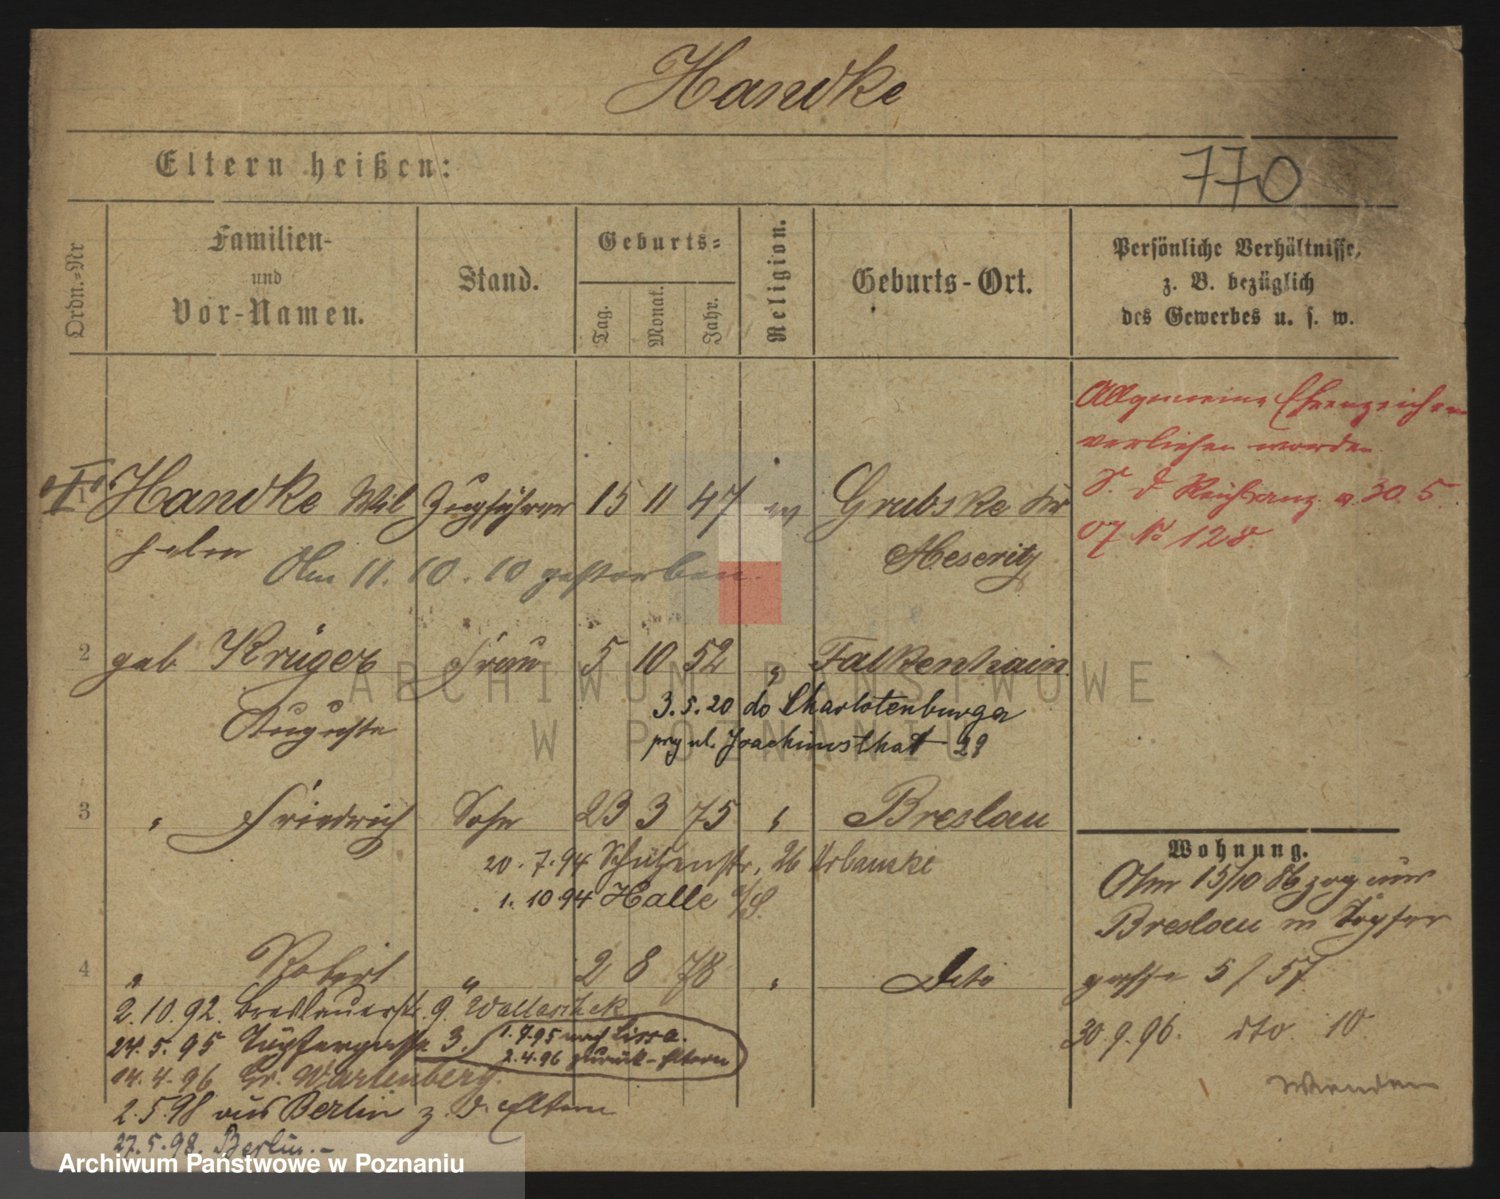 Handke
770
Eltern heißen:
Ordn.-Nr
Familien-
und
Vor-Namen.
Stand.
Geburts-
Tag.
Monat.
Jahr.
Religion.
Geburts-Ort.
Persönliche Verhältnisse,
z. B. bezüglich
des Gewerbes u. s. w.
Allgemeine Ehrenzeichen
verliehen worden
S. d Reichsanz. v. 30. 5.
07 No 128.
1 Handke Wil Zugführer 15 11 47 ev Grubske Kr
helm Meseritz
Am 11. 10. 10 gestorben.
2 geb Krüger Frau 5 10 52 " Falkenhain
Auguste
3.5.20 do Charlotenburga
przy ul. Joachimsthal 29
3 " Friedrich Sohn 23 3 75 " Breslau
20. 7. 94 Schützenstr. 26 Urbanski
1. 10 94 Halle a/S.
4 " Robert " 2 8 78 " Dito
2. 10. 92. Breslauerstr. 9.
24. 5. 95 Töpfergasse 3.
1. 7. 95 nach Lissa.
2. 4. 96 zurück - Eltern
14. 4. 96 Gr. Wartenberg.
2. 5. 98 aus Berlin z. d. Eltern
27. 5. 98. Berlin. -
Wohnung.
Am 15/10 86 zog aus
Breslau n Töpfer
gasse 5/57
30. 9. 96. dto 10
Wenden
ARCHIWUM PAŃSTWOWE
W POZNANIU
Archiwum Państwowe w Poznaniu